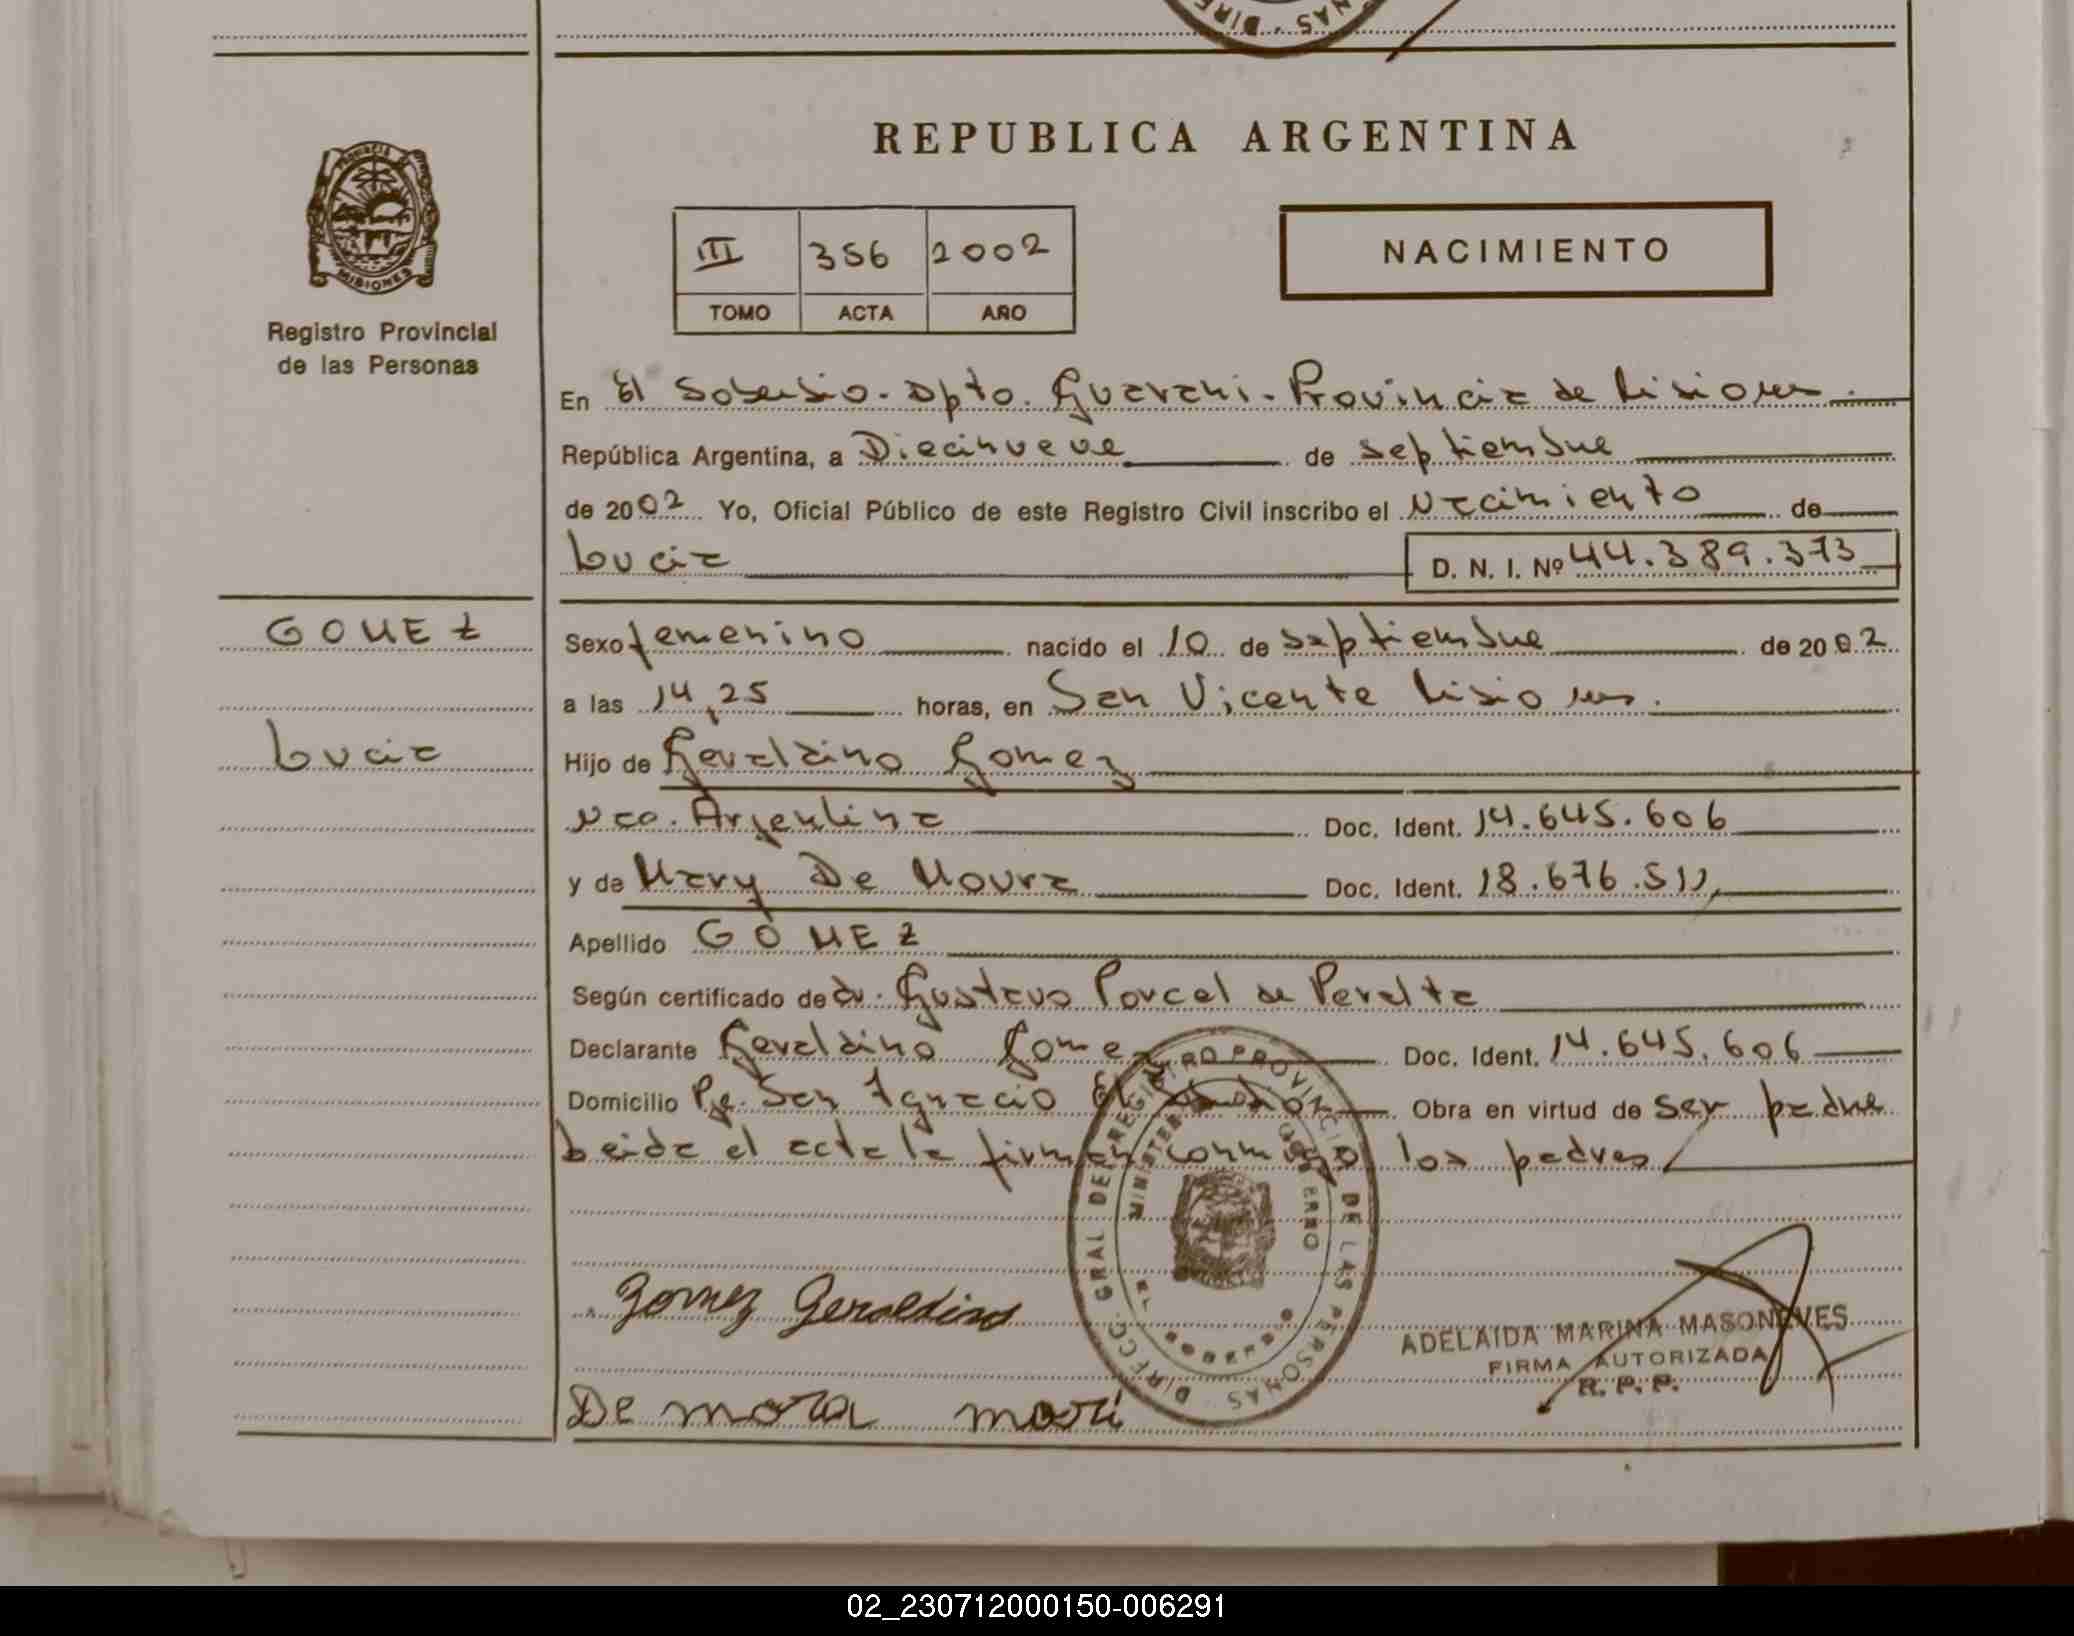 REPUBLICA ARGENTINA
PROVINCIA DE
MISIONES
Registro Provincial
de las Personas
III 356 2002
TOMO ACTA AÑO
NACIMIENTO
En El Soberbio. Dpto. Guarani. Provincia de Misiones.
República Argentina, a Diecinueve de septiembre
de 2002 Yo, Oficial Público de este Registro Civil inscribo el Nacimiento de
Lucia D. N. I. Nº 44.389.373
GOMEZ
Lucia
Sexo femenino nacido el 10 de septiembre de 2002
a las 14,25 horas, en San Vicente Misiones.
Hijo de Geraldino Gomez
Nac. Argentina Doc. Ident. 14.645.606
y de Mary De Moura Doc. Ident. 18.676.511
Apellido GOMEZ
Según certificado de dr. Gustavo Porcel de Peralta
Declarante Geraldino Gomez Doc. Ident. 14.645.606
Domicilio Pje. San Ignacio El Obra en virtud de ser padre
Leida el acta la firman conmigo los padres
DIRECC. GRAL DEL REGISTRO PROVINCIAL DE LAS PERSONAS
MINISTERIO GOBIERNO
EL SOBERBIO
Gomez Geraldino
ADELAIDA MARINA MASONEVES
FIRMA AUTORIZADA
R. P. P.
De mora mari
02_230712000150-006291